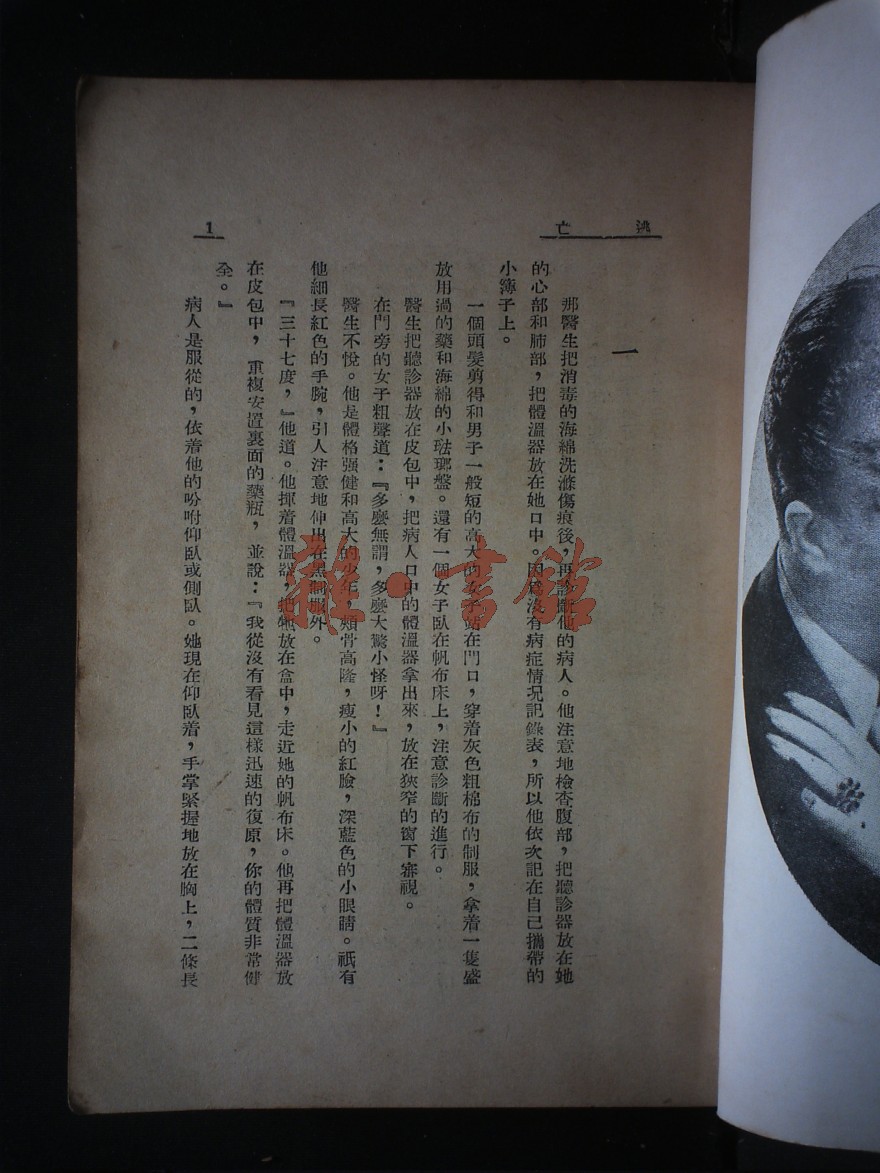 逃亡
1
一
那醫生把消毒的海綿洗滌傷痕後，再診斷他的病人。他注意地檢查腹部，把聽診器放在她
的心部和肺部，把體溫器放在她口中。因爲沒有病症情况記錄表，所以他依次記在自己攜帶的
小簿子上。
一個頭髮剪得和男子一般短的高大的女子站在門口，穿着灰色粗棉布的制服，拿着一隻盛
放用過的藥和海綿的小琺瑯盤。還有一個女子臥在帆布床上，注意診斷的進行。
醫生把聽診器放在皮包中，把病人口中的體溫器拿出來，放在狹窄的窗下審視。
在門旁的女子粗聲道：『多麼無謂，多麼大驚小怪呀！』
醫生不悅。他是體格强健和高大的少年，頰骨高隆，瘦小的紅臉，深藍色的小眼睛。祇有
他細長紅色的手腕，引人注意地伸出在黑制服外。
『三十七度，』他道。他揮着體溫器，把牠放在盒中，走近她的帆布床。他再把體溫器放
在皮包中，重複安置裏面的藥瓶，並說：『我從沒有看見這樣迅速的復原，你的體質非常健
全。』
病人是服從的，依着他的吩咐仰臥或側臥。她現在仰臥着，手掌緊握地放在胸上，二條長
雜·書館